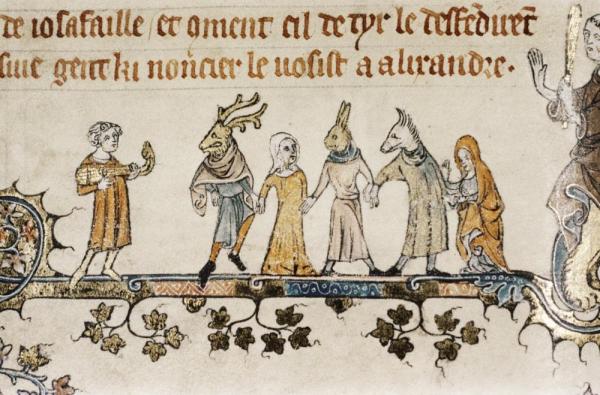 de iosafaille / et ꝯment cil de tyr le desfēdirēt
siue gent ki noncier le uosist a alixandre.